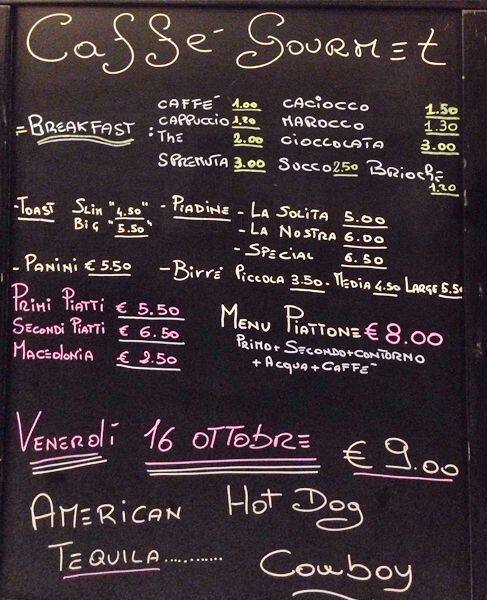 Caffé Gourmet
= BREAKFAST :
CAFFÉ 1.00 CACIOCCO 1.50
CAPPUCCIO 1.20 MAROCCO 1.30
THE 2.00 CIOCCOLATA 3.00
SPREMUTA 3.00 SUCCO 2.50 BRIOCHE 1.20
- TOAST SLIM "4.50" - PIADINE - LA SOLITA 5.00
BIG "5.50" - LA NOSTRA 6.00
- SPECIAL 6.50
- PANINI € 5.50 - BIRRE PICCOLA 3.50 - MEDIA 4.50 LARGE 5.50
PRIMI PIATTI € 5.50
SECONDI PIATTI € 6.50
MACEDONIA € 2.50
MENU PIATTONE € 8.00
PRIMO + SECONDO + CONTORNO
+ ACQUA + CAFFÉ
VENERDÌ 16 OTTOBRE € 9.00
AMERICAN HOT DOG
TEQUILA........... COWBOY